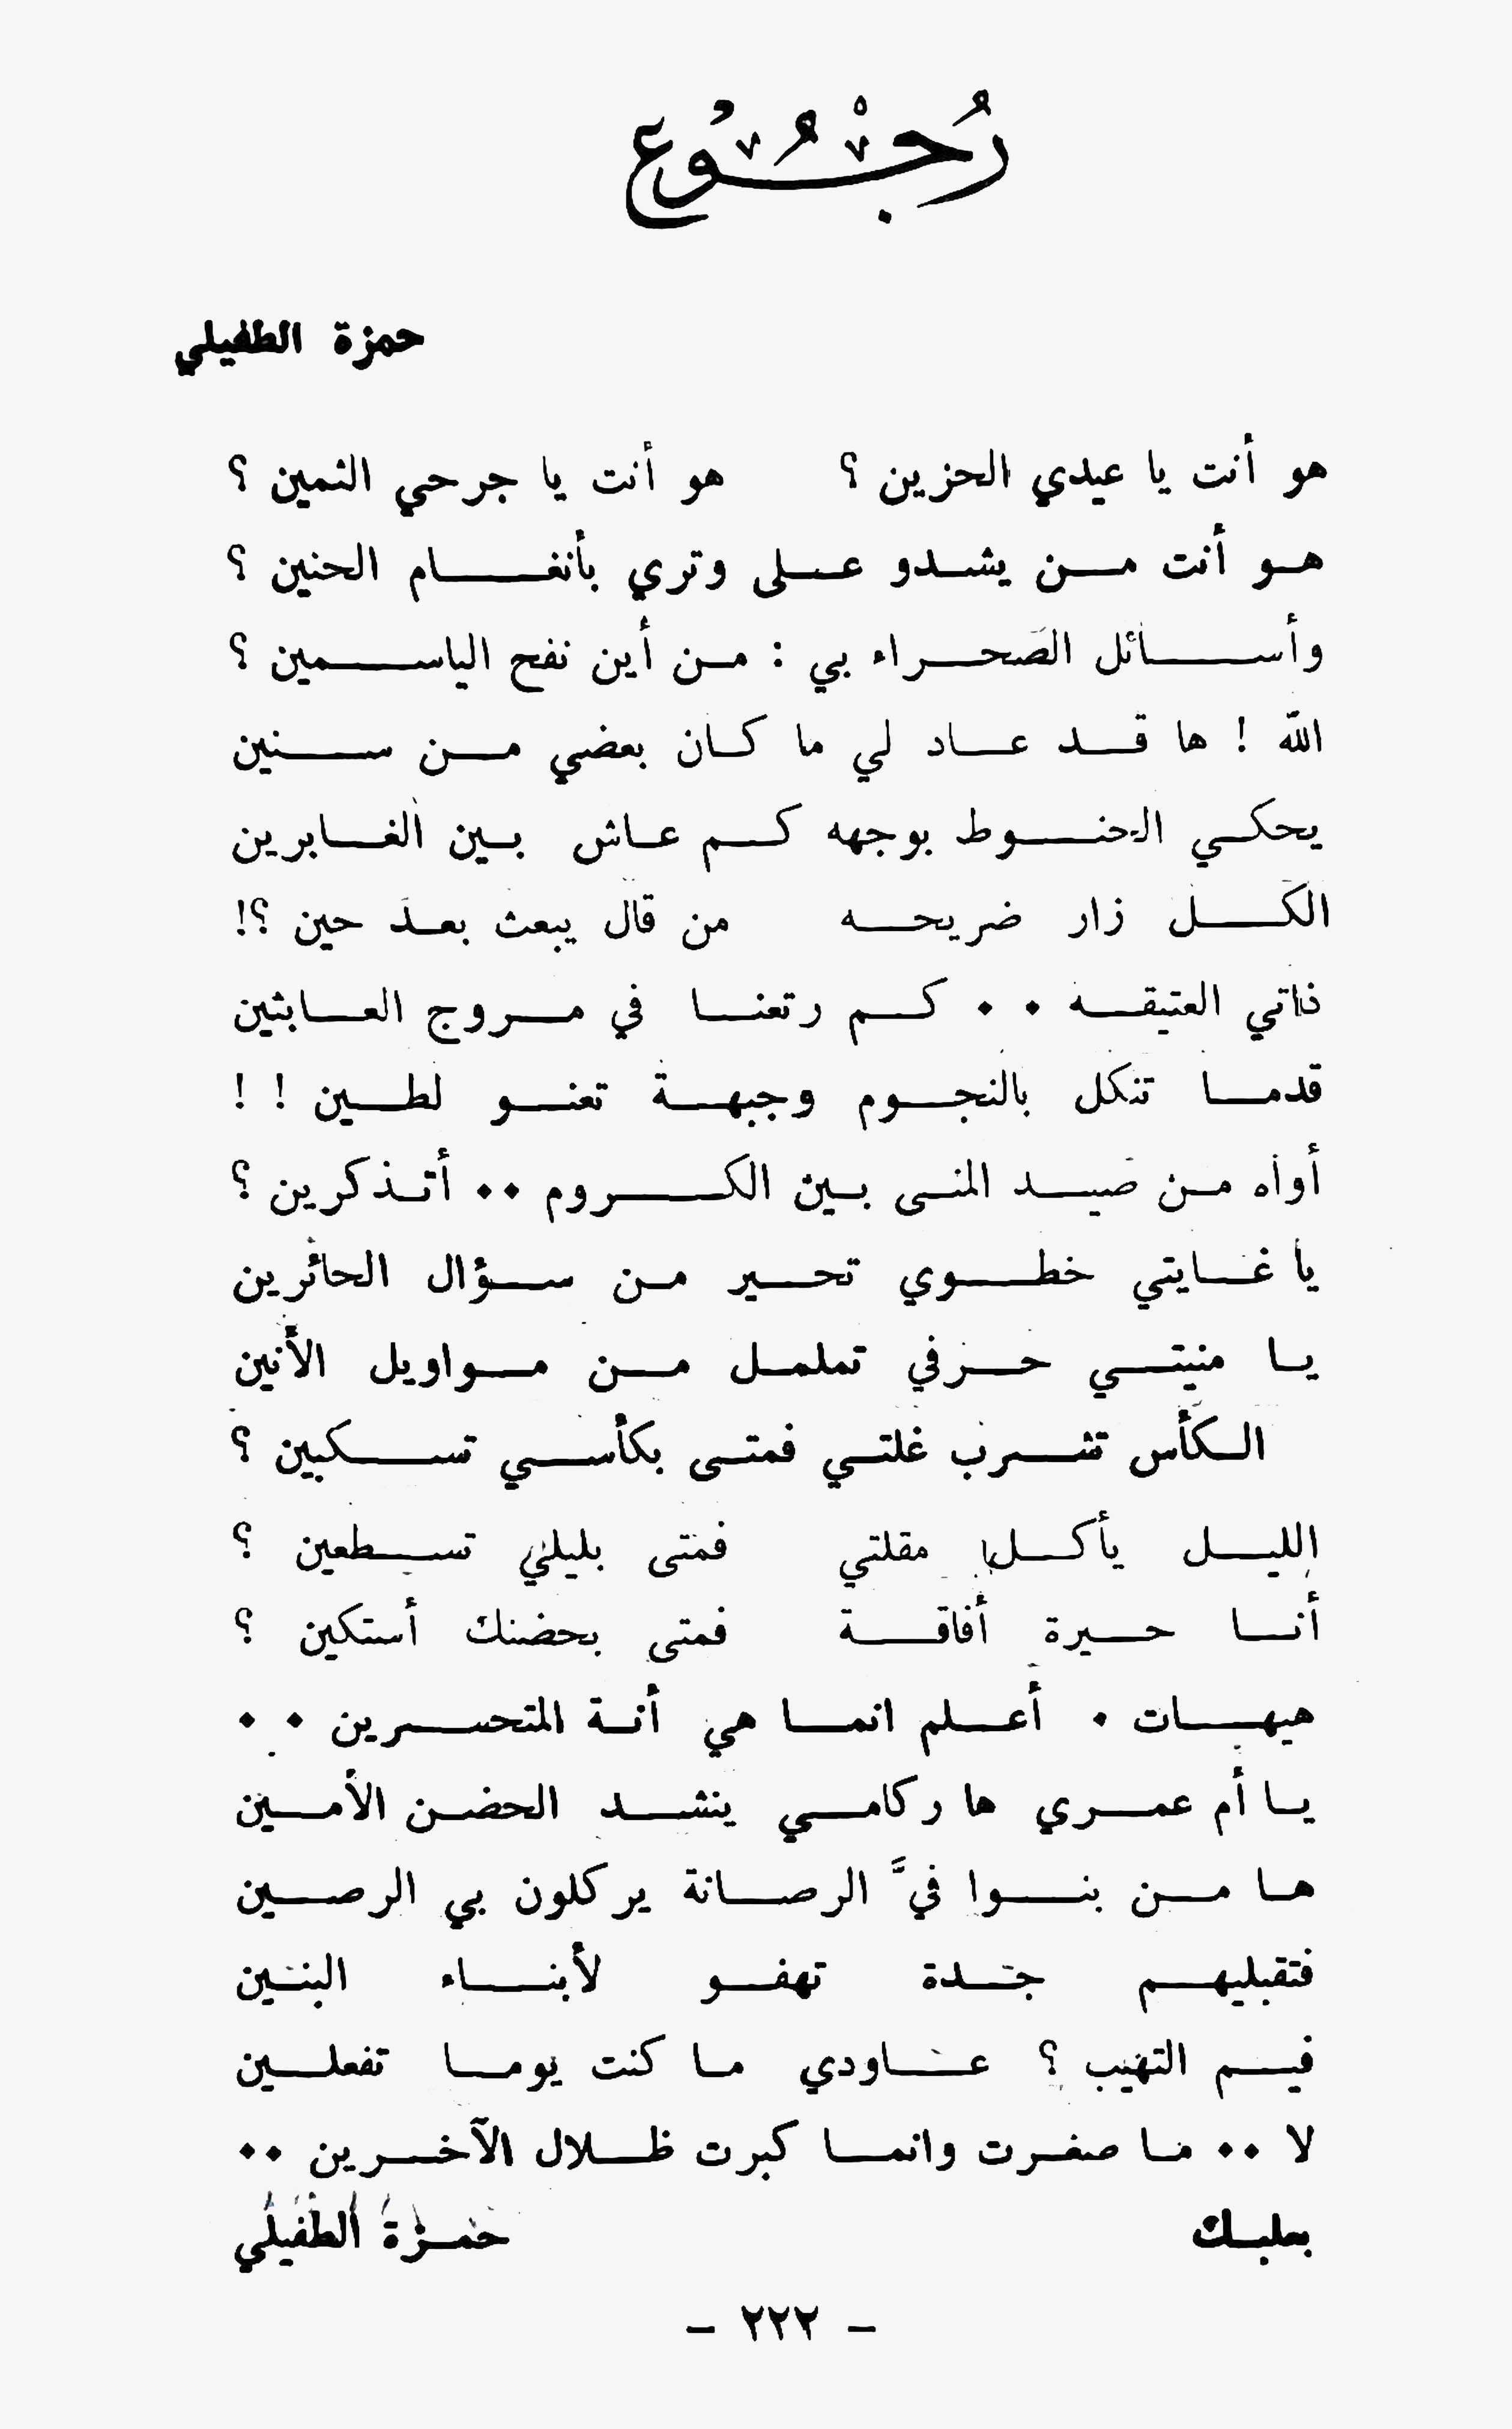 رُجُوْع
حمزة الطفيلي
هو أنت يا عيدي الحزين ؟ هو أنت يا جرحي الثمين ؟
هو أنت من يشدو على وتري بأنغام الحنين ؟
وأسائل الصحراء بي : من أين نفح الياسمين ؟
الله ! ها قد عاد لي ما كان بعضي من سنين
يحكي الحنوط بوجهه كم عاش بين الغابرين
الكل زار ضريحه من قال يبعث بعد حين ؟!
ذاتي العتيقه ٠ ٠ كم رتعنا في مروج العابثين
قدما تنكل بالنجوم وجبهة تعنو لطين ! !
أواه من صيد المنى بين الكروم ٠٠ أتذكرين ؟
يا غايتي خطوي تحير من سؤال الحائرين
يا منيتي حرفي تململ من مواويل الأنين
الكأس تشرب غلتي فمتى بكأسي تسكبين ؟
الليل يأكل مقلتي فمتى بليلي تسطعين ؟
أنا حيرة أفاقة فمتى بحضنك أستكين ؟
هيهات ٠ أعلم انما هي أنة المتحسرين ٠ ٠
يا أم عمري ها ركامي ينشد الحضن الأمين
ها من بنوا فيَّ الرصانة يركلون بي الرصين
فتقبليهم جدة تهفو لأبناء البنين
فيم التهيب ؟ عاودي ما كنت يوما تفعلين
لا ٠٠ ما صغرت وانما كبرت ظلال الآخرين ٠٠
بعلبك حمزة الطفيلي
- ٢٢٢ -